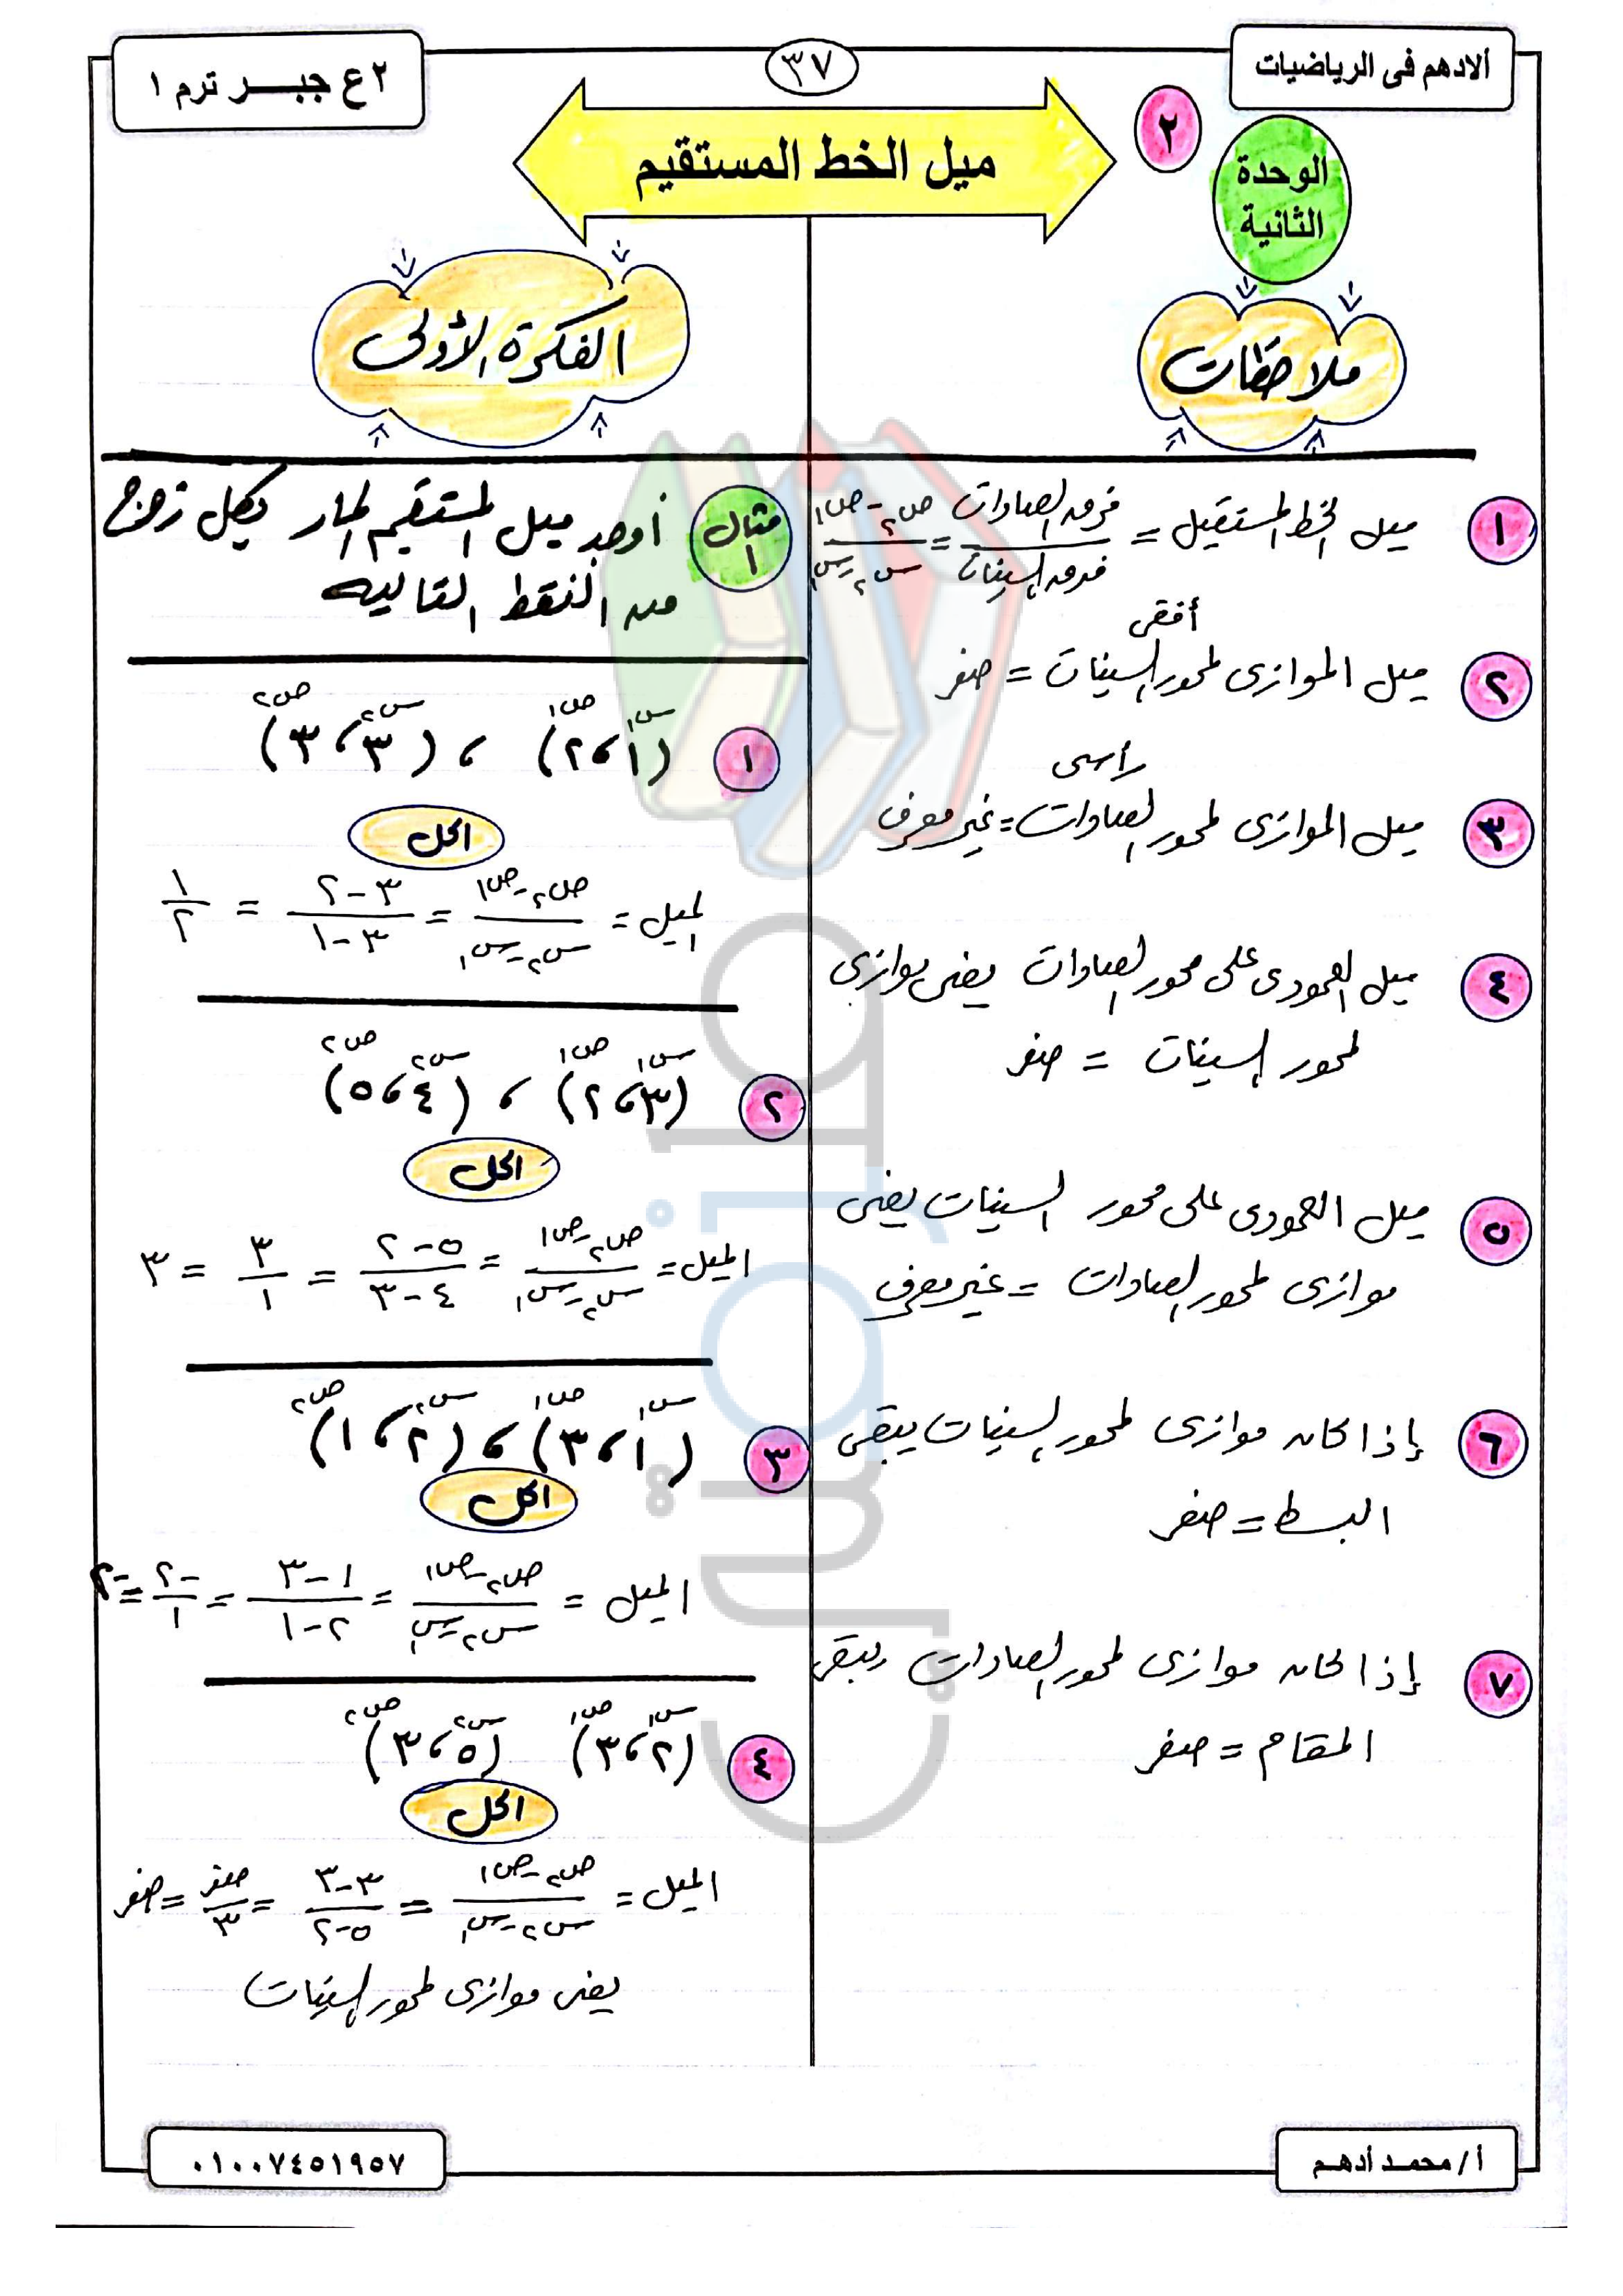 ألادهم فى الرياضيات
٣٧
٢ع جبـــر ترم ١
٢
الوحدة
الثانية
ميل الخط المستقيم
ملاحظات
١ ميل الخط المستقيل = فرق الصادات / فرق السينات = ص٢ - ص١ / س٢ - س١
أفقى
٢ ميل الموازى لمحور السينات = صفر
رأسى
٣ ميل الموازى لمحور الصادات = غير معرف
٤ ميل العمودى على محور الصادات يعنى يوازى
لمحور السينات = صفر
٥ ميل العمودى على محور السينات يعنى
موازى لمحور الصادات = غير معرف
٦ إذا كان موازى لمحور السينات يبقى
البسط = صفر
٧ إذا كان موازى لمحور الصادات يبقى
المقام = صفر
الفكرة الأولى
مثال ١ أوجد ميل المستقيم المار بكل زوج
من النقط التاليه
س١ ص١ س٢ ص٢
١ (١ ، ٢) ، (٣ ، ٣)
الحل
الميل = ص٢ - ص١ / س٢ - س١ = ٣ - ٢ / ٣ - ١ = ١ / ٢
س١ ص١ س٢ ص٢
٢ (٣ ، ٢) ، (٤ ، ٥)
الحل
الميل = ص٢ - ص١ / س٢ - س١ = ٥ - ٢ / ٤ - ٣ = ٣ / ١ = ٣
س١ ص١ س٢ ص٢
٣ (١ ، ٣) ، (٢ ، ١)
الحل
الميل = ص٢ - ص١ / س٢ - س١ = ١ - ٣ / ٢ - ١ = -٢ / ١ = -٢
س١ ص١ س٢ ص٢
٤ (٢ ، ٣) (٥ ، ٣)
الحل
الميل = ص٢ - ص١ / س٢ - س١ = ٣ - ٣ / ٥ - ٢ = صفر / ٣ = صفر
يعنى موازى لمحور السينات
أ/ محمد أدهم
٠١٠٠٧٤٥١٩٥٧